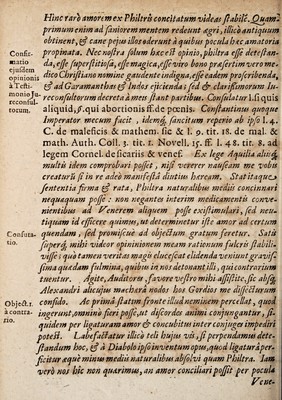 Hinc rarò amorem ex Philtris concitatum videas stabilē. Quam-
primum enim ad saniorem mentem redeunt ægri, illicò antiquum
obtinent, & cane pejus illos oderunt à quibus pocula hæc amatoria
Confir-
matio
ejusdem
opinionis
à Testi-
monio Ju-
reconsul-
torum.
propinata. Nec nostra solùm hæc est opinio, philtra esse detestan-
da, esse superstitiosa, esse magica, esse viro bono præsertim vero me-
dico Christiano nomine gaudente indigna, esse eadem proscribenda,
& ad Garamanthas & Indos ejicienda; sed & clarissimorum Ju-
reconsultorum decreta à meis stant partibus. Consulatur l. si quis
aliquid, s. qui abortionis ff. de pœnis. Constantinus quoque
Imperator mecum facit, idemq́; sancitum reperio ab ipso l. 4.
C. de maleficis & mathem. sic & l. 9. tit. 18. de mal. &
math. Auth. Coll. 3. tit. 1. Novell. 15. ff. l. 48. tit. 8. ad
legem Cornel. de sicariis & venef. Ex lege Aquilia aliisq́;
multis idem comprobari posset, nisi vererer nauseam me vobis
creaturū si in re adeò manifestâ diutius hæream. Stat itaque
sententia firma & rata, Philtra naturalibus medii concinnari
nequaquam posse: non negantes interim medicamentis conve-
nientibus ad Venerem aliquem posse exstimulari, sed neu-
tiquam id efficere quimus, ut determinetur iste amor ad certum
Confuta-
tio.
quendam, sed promiscuè ad objectum gratum feretur. Sati
superq́; mihi videor opininionem meam rationum fulcris stabili-
visse: quò tamen veritas magis elucescat elidenda veniunt gravis-
sima quædam fulmina, quibus in nos detonant illi, qui contrarium
tuentur. Agite, Auditores, favore vestro mihi assistite, sic absq́;
Alexandri alicujus machærâ nodos hos Gordios me dissecturum
Object. 1.
à contra-
rio.
confido. Ac primâ statim fronte illud neminem percellat, quod
ingerunt, omninò fieri posse, ut discordes animi conjungantur, si-
quidem per ligaturam amor & concubitus inter conjuges impediri
potest. Labefactatur illicò teli hujus vis, si perpendamus dete-
standum hoc, & à Diabolo ipso inventum opus, quod ligatura per-
ficitur æquè minus mediis naturalibus absolvi quam Philtra. Iam
verò nos hic non quærimus, an amor conciliari possit per pocula
Vene-